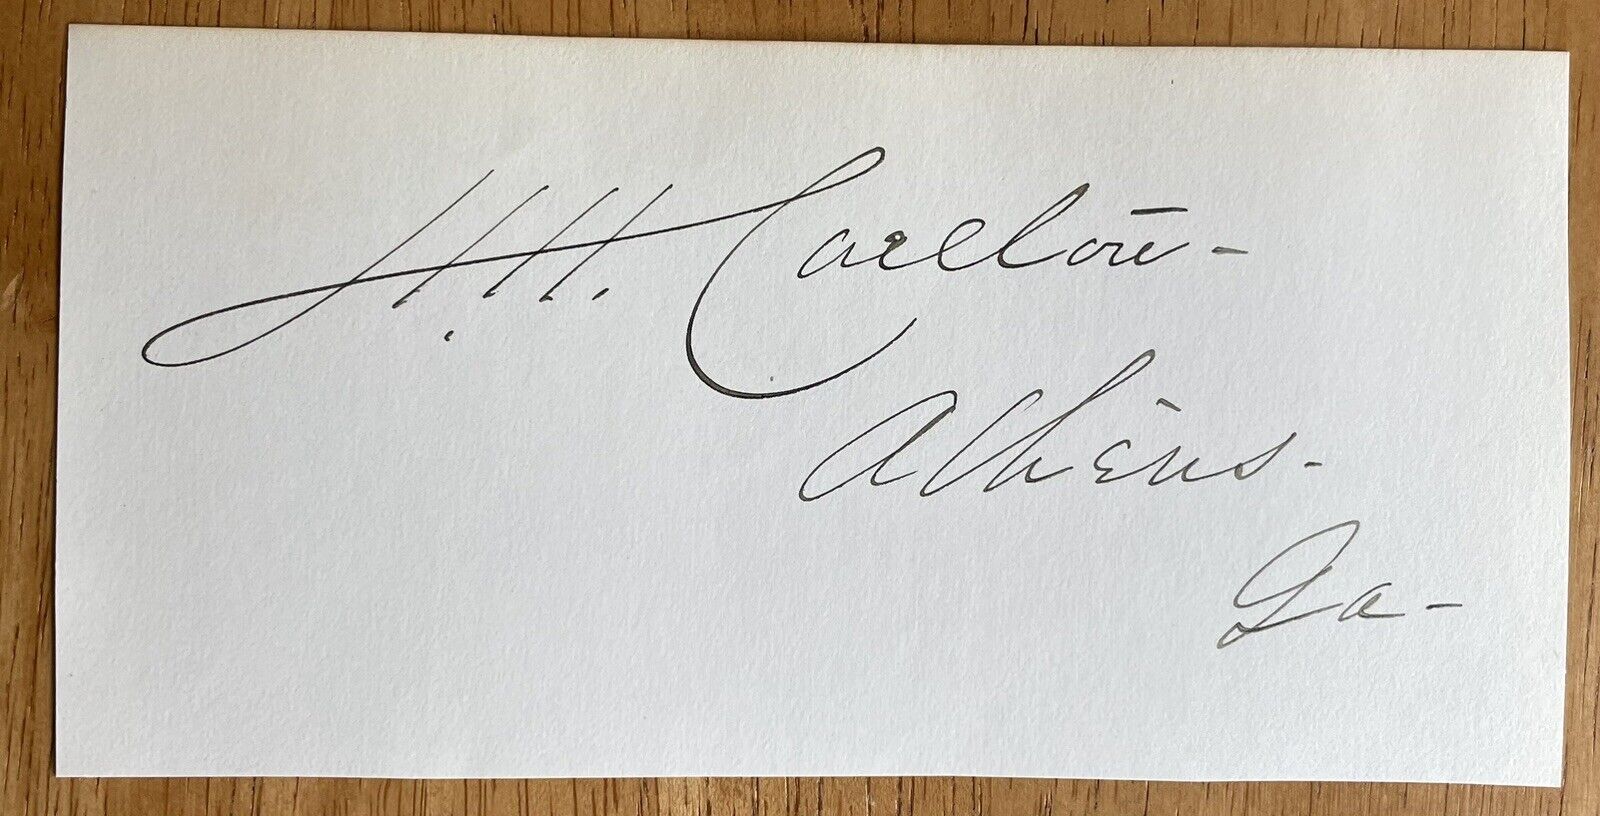 H. H. Carlton-
Athens-
Ga-